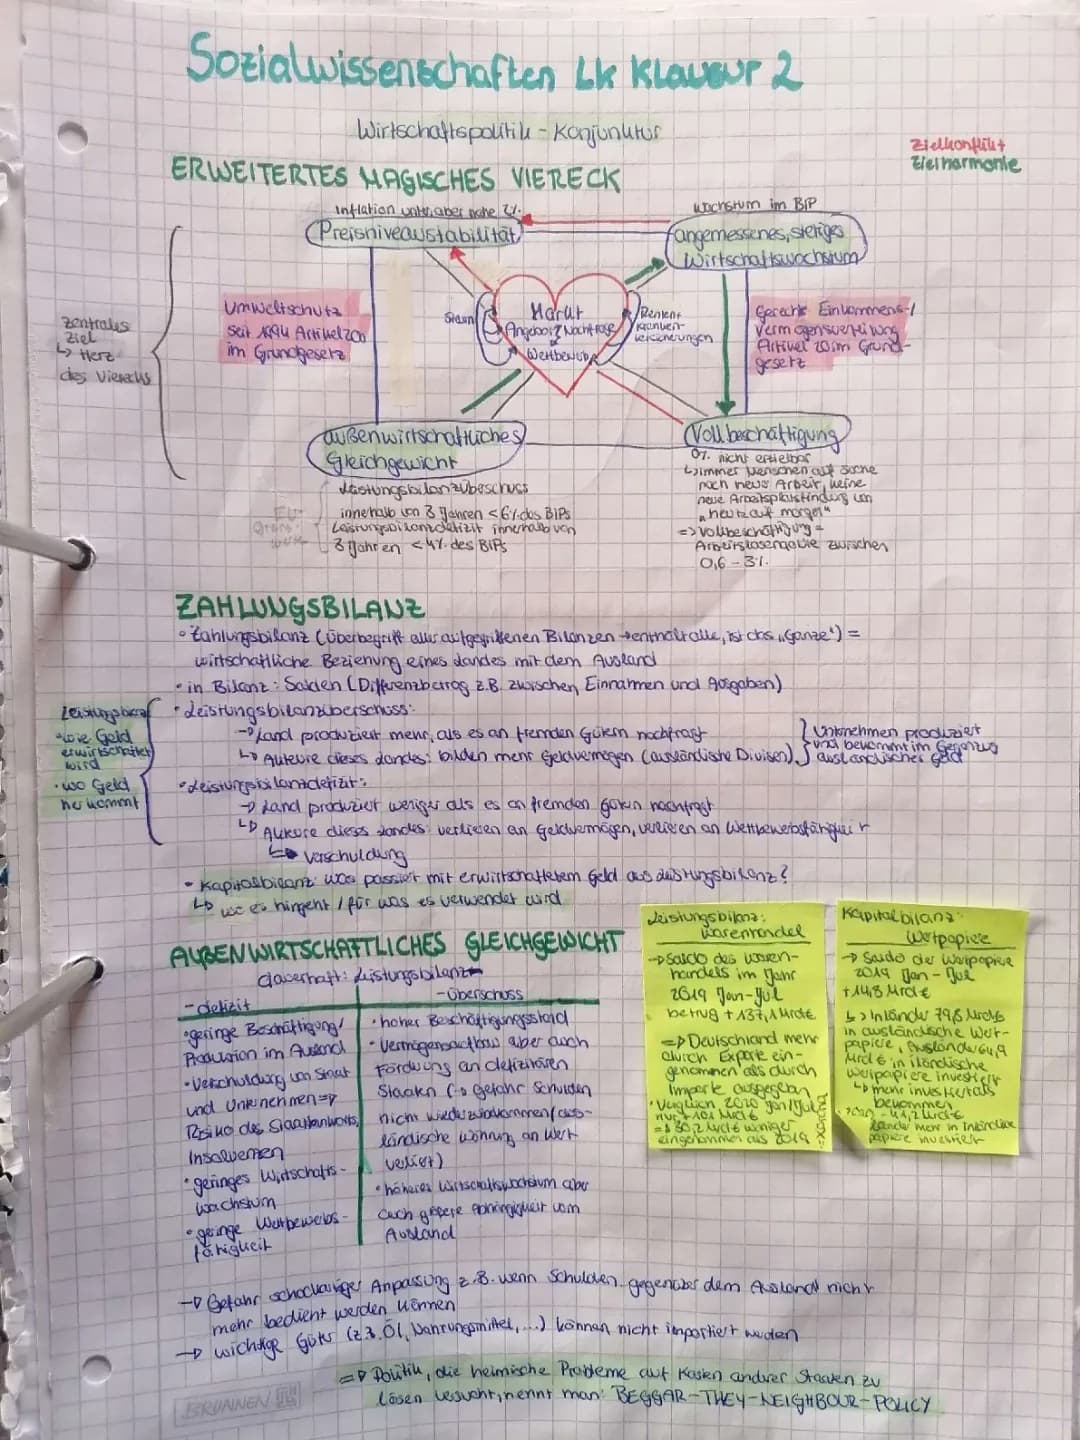 Sozialwissenschaften Lk Klausur 2
Wirtschaftspolitik - Konjunktur
Zielkonflikt
Zielharmonie
ERWEITERTES MAGISCHES VIERECK
Inflation unter, aber nahe 2%
Preisniveaustabilität
Wachstum im BIP
angemessenes, stetiges
Wirtschaftswachstum
zentrales
Ziel
↳ Herz
des Vierecks
Umweltschutz
seit 1994 Artikel 20a
im Grundgesetz
Staat
Markt
Angebot & Nachfrage
Wettbewerb
Renten
Kranken-
versicherungen
Gerechte Einkommens-/
Vermögensverteilung
Artikel 20 im Grund-
gesetz
außenwirtschaftliches
Gleichgewicht
Leistungsbilanzüberschuss
innerhalb von 3 Jahren <6% des BIPs
Leistungsbilanzdefizit innerhalb von
3 Jahren <4% des BIPs
EU-
Vollbeschäftigung
0% nicht erzielbar
↳ immer Menschen auf Suche
nach neuer Arbeit, keine
neue Arbeitsplatzfindung von
„heut auf morgen"
=> Vollbeschäftigung =
Arbeitslosenquote zwischen
0,6 - 3%
ZAHLUNGSBILANZ
• Zahlungsbilanz (Überbegriff aller aufgegriffenen Bilanzen → enthält alle, ist das „Ganze") =
wirtschaftliche Beziehung eines Landes mit dem Ausland
• in Bilanz: Salden (Differenzbetrag z.B. zwischen Einnahmen und Ausgaben)
Leistungsbilanz
• wie Geld
erwirtschaftet
wird
• wo Geld
herkommt
• Leistungsbilanzüberschuss:
→ Land produziert mehr, als es an fremden Gütern nachfragt
↳ Akteure dieses Landes: bilden mehr Geldvermögen (ausländische Divisen)
Unternehmen produziert
und bekommt im Gegenzug
ausländisches Geld
• Leistungsbilanzdefizit:
→ Land produziert weniger als es an fremden Gütern nachfragt
↳ Akteure dieses Landes: verlieren an Geldvermögen, verlieren an Wettbewerbsfähigkeit
↳ Verschuldung
• Kapitalbilanz: was passiert mit erwirtschaftetem Geld aus Leistungsbilanz?
↳ wo es hingeht / für was es verwendet wird
AUßENWIRTSCHAFTLICHES GLEICHGEWICHT
dauerhaft: Leistungsbilanz
- defizit
• geringe Beschäftigung/
Produktion im Ausland
• Verschuldung von Staat
und Unternehmen =>
Risiko des Staatsbankrotts,
Insolvenzen
• geringes Wirtschafts-
wachstum
• geringe Wettbewerbs-
fähigkeit
- überschuss
• hoher Beschäftigungsstand
• Vermögensaufbau aber auch
Forderung an defizitären
Staaten (→ Gefahr Schulden
nicht wiederzubekommen/aus-
ländische Währung an Wert
verliert)
• höheres Wirtschaftswachstum aber
auch größere Abhängigkeit vom
Ausland
Leistungsbilanz:
Warenhandel
→ Saldo des Waren-
handels im Jahr
2019 Jan-Jul
betrug +137,1 Mrd€
=> Deutschland mehr
durch Exporte ein-
genommen als durch
Importe ausgegeben
• Vergleich 2020 Jan/Jul:
nur + 101 Mrd€
weniger
eingenommen als 2019
Kapitalbilanz:
Wertpapiere
→ Saldo der Wertpapiere
2019 Jan - Jul
+14,8 Mrd€
↳ Inländer 79,8 Mrd€
in ausländische Wert-
papiere, Ausländer 64,9
Mrd€ in inländische
Wertpapiere investiert
↳ mehr investiert als
bekommen
Länder mehr in Inländische
papiere investiert
→ Gefahr schockartiger Anpassung z.B. wenn Schulden gegenüber dem Ausland nicht
mehr bedient werden können
→ wichtige Güter (z.B. Öl, Nahrungsmittel, ...) können nicht importiert werden
=> Politik, die heimische Probleme auf Kosten anderer Staaten zu
lösen versucht, nennt man: BEGGAR-THEY-NEIGHBOUR-POLICY
BRUNNEN